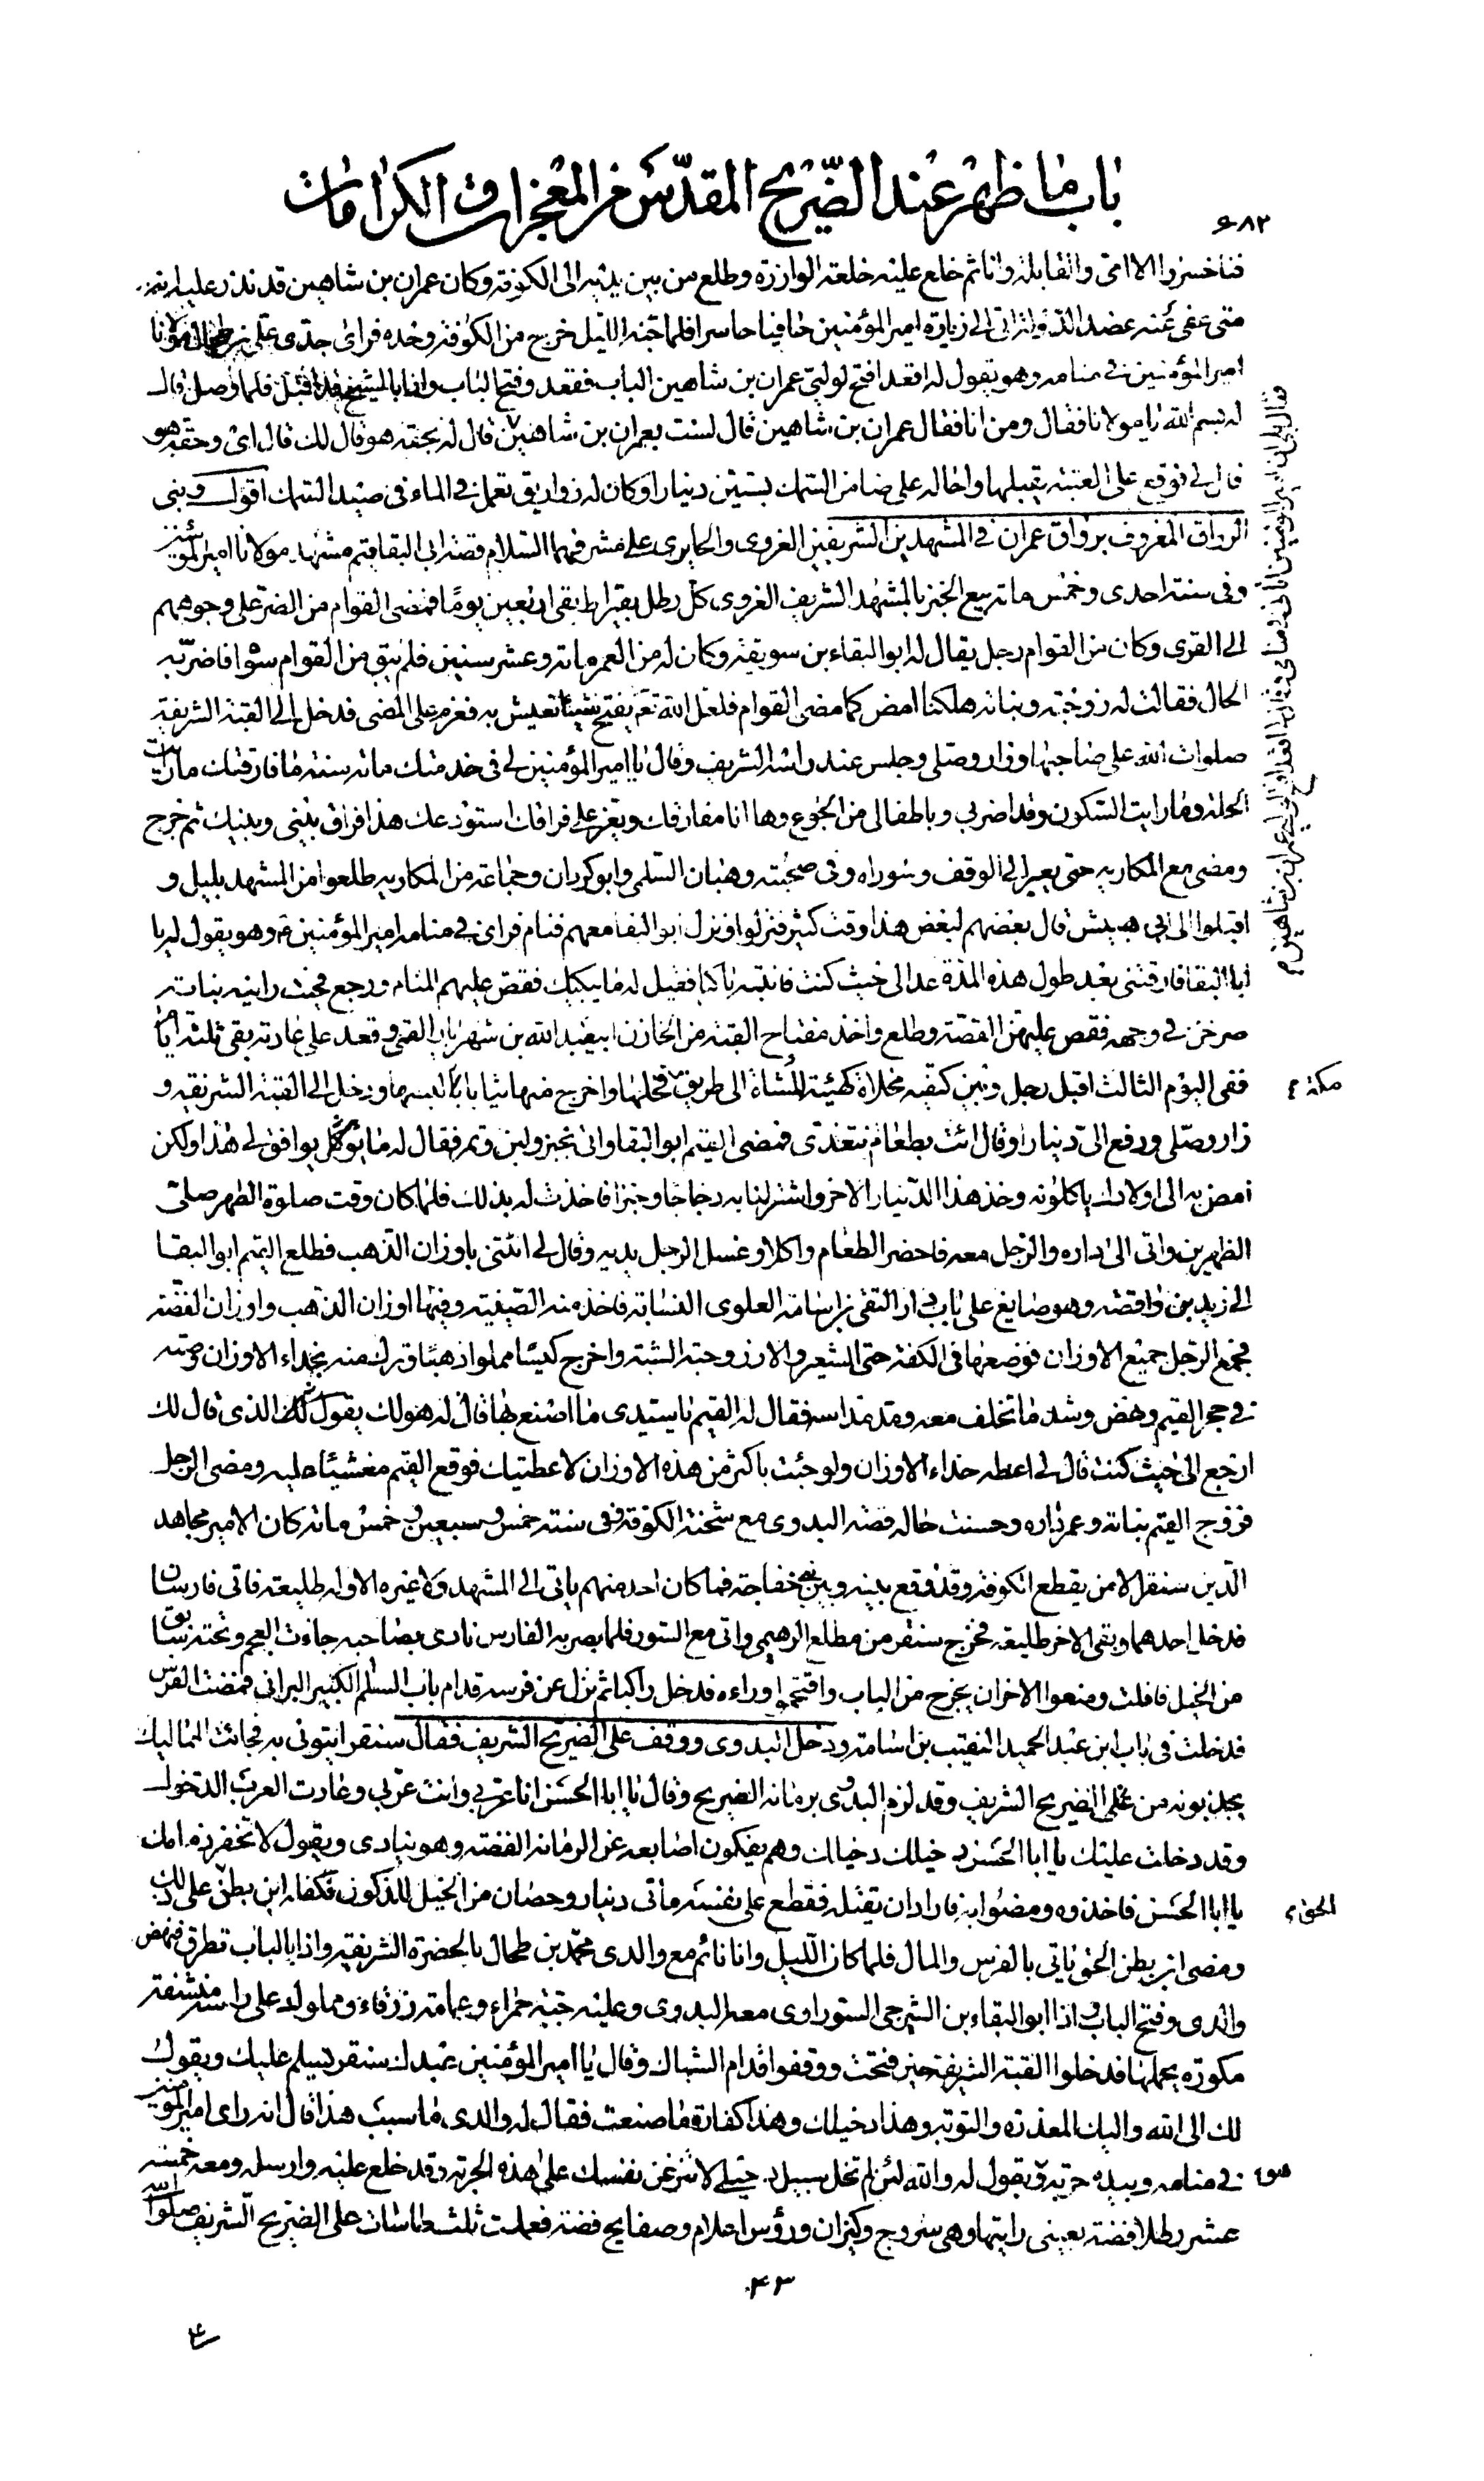 باب ما ظهر عند الضريح المقدس من المعجزات و الكرامات
۶۸۲
فناخسرو الا امی وا لقابلة وانا ثم خلع علیه خلعة الوازرة وطلع من بین یدیه الی الکوفة وکان عمران بن شاهین قد نذر علیه انه
متی عفی عنه عضد الدولة اتی الی زیارة امیر المؤمنین حافیا حاسرا فلما جنه اللیل خرج من الکوفة وحده فرای جدی علی بن طحال مولانا
امیر المؤمنین فی منامه وهو یقول له اقعد افتح لولیی عمران بن شاهین الباب فقعد وفتح الباب واذا بالشیخ قد اقبل فلما وصل قال
له بسم الله یا مولانا فقال ومن انا فقال عمران بن شاهین قال لست بعمران بن شاهین قال له بحقه هو قال لک قال ای وحقه هو
قال لی فوقع علی العتبة یقبلها واحاله علی ضامن السمک بستین دینارا وکان له زواریق تعمل فی الماء فی صید السمک اقول وبنی
الرواق المعروف برواق عمران فی المشهدین الشریفین الغروی والحایری علی مشرفهما السلام قصة ابی البقا قیم مشهد مولانا امیر المؤمنین
وفی سنة احدی وخمس مائة بیع الخبز بالمشهد الشریف الغروی کل رطل بقیراط بقی اربعین یوما فمضی القوام من الضر علی وجوههم
الی القری وکان من القوام رجل یقال له ابو البقاء بن سویقة وکان له من العمر مائة وعشر سنین فلم یبق من القوام سواه فاضر به
الحال فقالت له زوجته وبناته هلکنا امض کما مضی القوام فلعل الله تع یفتح شیئا نعیش به فعزم علی المضی فدخل الی القبة الشریفة
صلوات الله علی صاحبها وزار وصلی وجلس عند راسه الشریف وقال یا امیر المؤمنین لی فی خدمتک مائة سنة ما فارقتک ما رایت
الحلة وما رایت السکون وقد اضر بی وباطفالی من الجوع وها انا مفارقک ویعز علی فراقک استودعک هذا فراق بینی وبینک ثم خرج
ومضی مع المکاریة حتی یعبر الی الوقف وسوراء وفی صحبته وهبان السلمی وابو کردان وجماعة من المکاریة طلعوا من المشهد بلیل و
اقبلوا الی ابی هبیش قال بعضهم لبعض هذا وقت کثیر فنزلوا ونزل ابو البقا معهم فنام فرای فی منامه امیر المؤمنین ع وهو یقول له یا
ابا البقا فارقتنی بعد طول هذه المدة عد الی حیث کنت فانتبه باکیا فقیل له ما یبکیک فقص علیهم المنام ورجع فحیث راینه بناته
صرخن فی وجهه فقص علیهن القصة وطلع واخذ مفتاح القبة من الخازن ابی عبد الله بن شهریار القمی وقعد علی عادته بقی ثلثة ایام
ففی الیوم الثالث اقبل رجل وبین کتفیه مخلاة کهیئة المشاة الی طریق فحلها واخرج منها ثیابا لبسها ودخل الی القبة الشریفة و
زار وصلی ودفع الی دینارا وقال ائت بطعام نتغدی فمضی القیم ابو البقا واتی بخبز ولبن وتمر فقال له ما یوکل یوافق لی هذا ولکن
امض به الی اولادک یاکلونه وخذ هذا الدینار الاخر واشتر لنا به دجاجا وخبزا فاخذت له بذلک فلما کان وقت صلوة الظهر صلی
الظهرین واتی الی داره والرجل معه فاحضر الطعام واکلا وغسل الرجل یدیه وقال لی ائتنی باوزان الذهب فطلع القیم ابو البقا
الی زید بن واقصة وهو صایغ علی باب دار التقی بن اسامة العلوی النسابة فاخذ منه الصینیة وفیها اوزان الذهب واوزان الفضة
فجمع الرجل جمیع الاوزان فوضعها فی الکفة حتی الشعیر والارز وحبة الشبة واخرج کیسا مملوا ذهبا وترک منه بحذاء الاوزان وصبه
فی حجر القیم ونهض وشد ما تخلف معه ومد مداسه فقال له القیم یا سیدی ما اصنع بها قال له هو لک الذی قال لک
ارجع الی حیث کنت قال لی اعطه حذاء الاوزان ولو جئت باکثر من هذه الاوزان لاعطیتک فوقع القیم مغشیا علیه ومضی الرجل
فزوج القیم بناته وعمر داره وحسنت حاله قصة البدوی مع شحنة الکوفة فی سنة خمس وسبعین وخمس مائة کان الامیر مجاهد
الدین سنقر الامن یقطع الکوفة وقد وقع بینه وبین بنی خفاجة فما کان احد منهم یاتی الی المشهد ولا غیره الا وله طلیعة فاتی فارسان
فدخل احدهما وبقی الاخر طلیعة فخرج سنقر من مطلع الرهیمی واتی مع السور فلما بصر به الفارس نادی بصاحبه جاءت العجم وتحته سابق
من الخیل فافلت ومنعوا الاخر ان یخرج من الباب واقتحموا وراءه فدخل راکبا ثم نزل عن فرسه قدام باب السلم الکبیر البرانی فمضت الفرس
فدخلت فی باب ابن عبد الحمید النقیب بن اسامة ودخل البدوی ووقف علی الضریح الشریف فقال سنقر ایتونی به فجائت الممالیک
یجذبونه من علی الضریح الشریف وقد لزم البدوی برمانة الضریح وقال یا ابا الحسن انا عربی وانت عربی وعادت العرب الدخول
وقد دخلت علیک یا ابا الحسن دخیلک دخیلک وهم یفکون اصابعه عن الرمانة الفضة وهو ینادی ویقول لا تخفر ذمامک
یا ابا الحسن فاخذوه ومضوا به فاراد ان یقتله فقطع علی نفسه مأتی دینار وحصان من الخیل المذکور فکفله ابن بطن علی ذلک
ومضی ابن بطن الحق یاتی بالفرس والمال فلما کان اللیل وانا نائم مع والدی محمد بن طحال بالحضرة الشریفة واذا بالباب تطرق فنهض
والدی وفتح الباب واذا ابو البقاء بن الشیرجی السوراوی معه البدوی وعلیه جبة حمراء وعمامة زرقاء ومملوک علی راسه منشفة
مکورة یحملها فدخلوا القبة الشریفة حین فتحت ووقفوا قدام الشباک وقال یا امیر المؤمنین عبدک سنقر یسلم علیک ویقول
لک الی الله والیک المعذرة والتوبة وهذا دخیلک وهذا کفارة ما صنعت فقال له والدی ما سبب هذا قال انه رای امیر المؤمنین
فی منامه وبیده حربة ویقول له والله لئن لم تخل سبیل دخیلی لانتزعن نفسک علی هذه الحربة وقد خلع علیه وارسله ومعه خمسة
عشر رطلا فضة بعینی رایتها وهی سروج وکیزان ورؤس اعلام وصفایح فضة فعملت ثلث طاسات علی الضریح الشریف صلوات الله
مکة م
الحق م
هو
۴۳